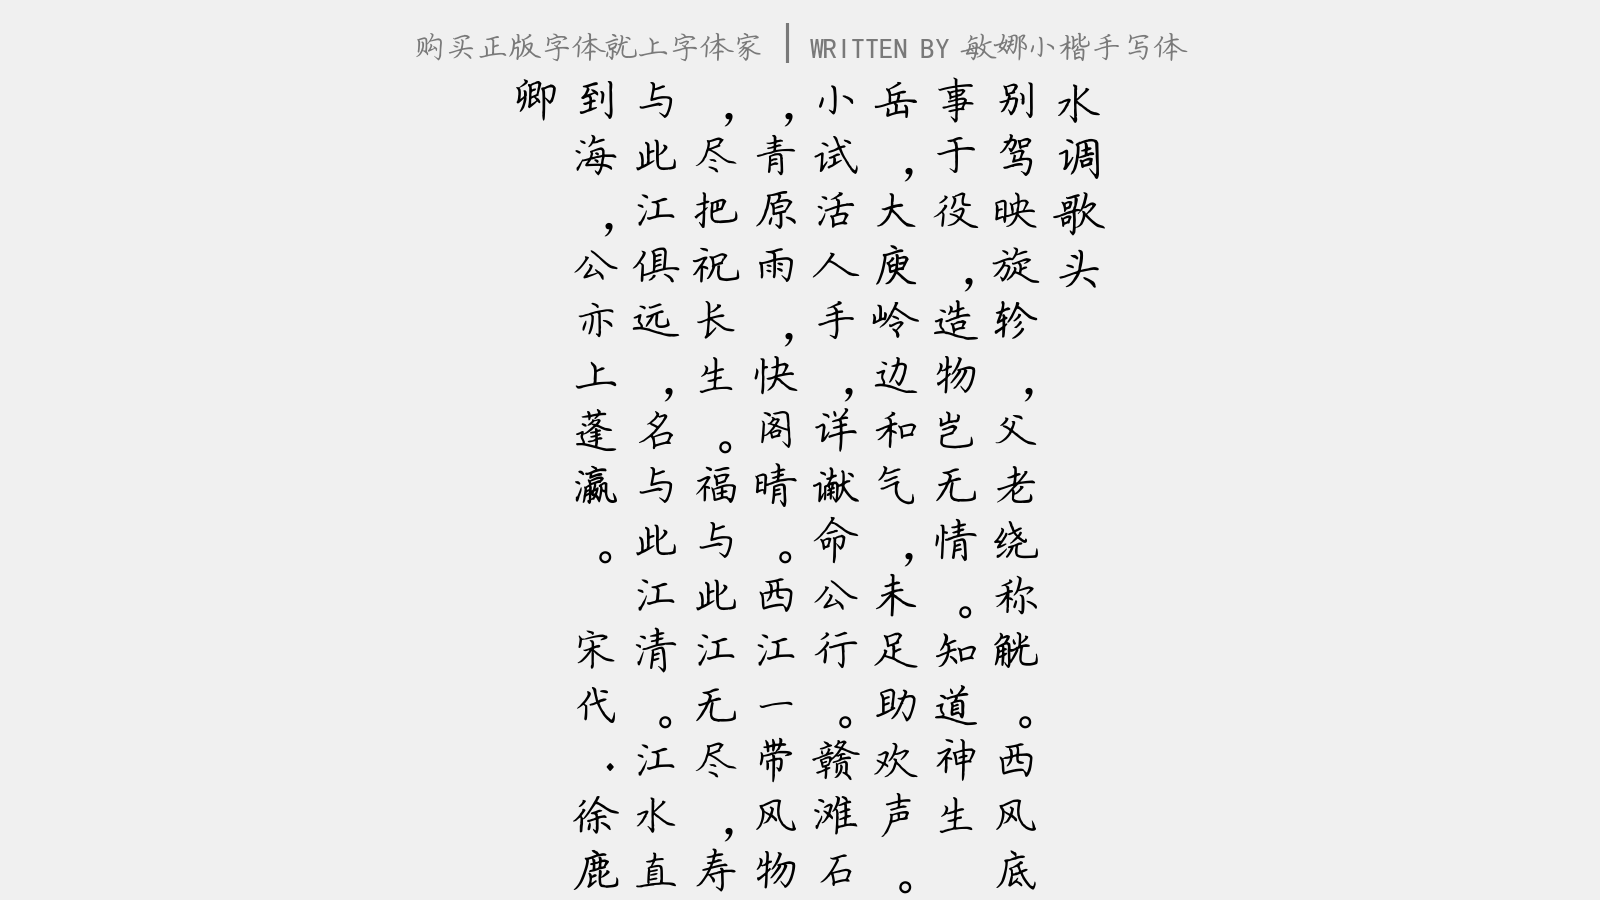 购买正版字体就上字体家 | WRITTEN BY 敏娜小楷手写体
水调歌头
别驾映旋轸，父老绕称觥。西风底
事于役，造物岂无情。知道神生
岳，大庾岭边和气，未足助欢声。
小试活人手，详谳命公行。赣滩石
，青原雨，快阁晴。西江一带风物
，尽把祝长生。福与此江无尽，寿
与此江俱远，名与此江清。江水直
到海，公亦上蓬瀛。 宋代·徐鹿
卿